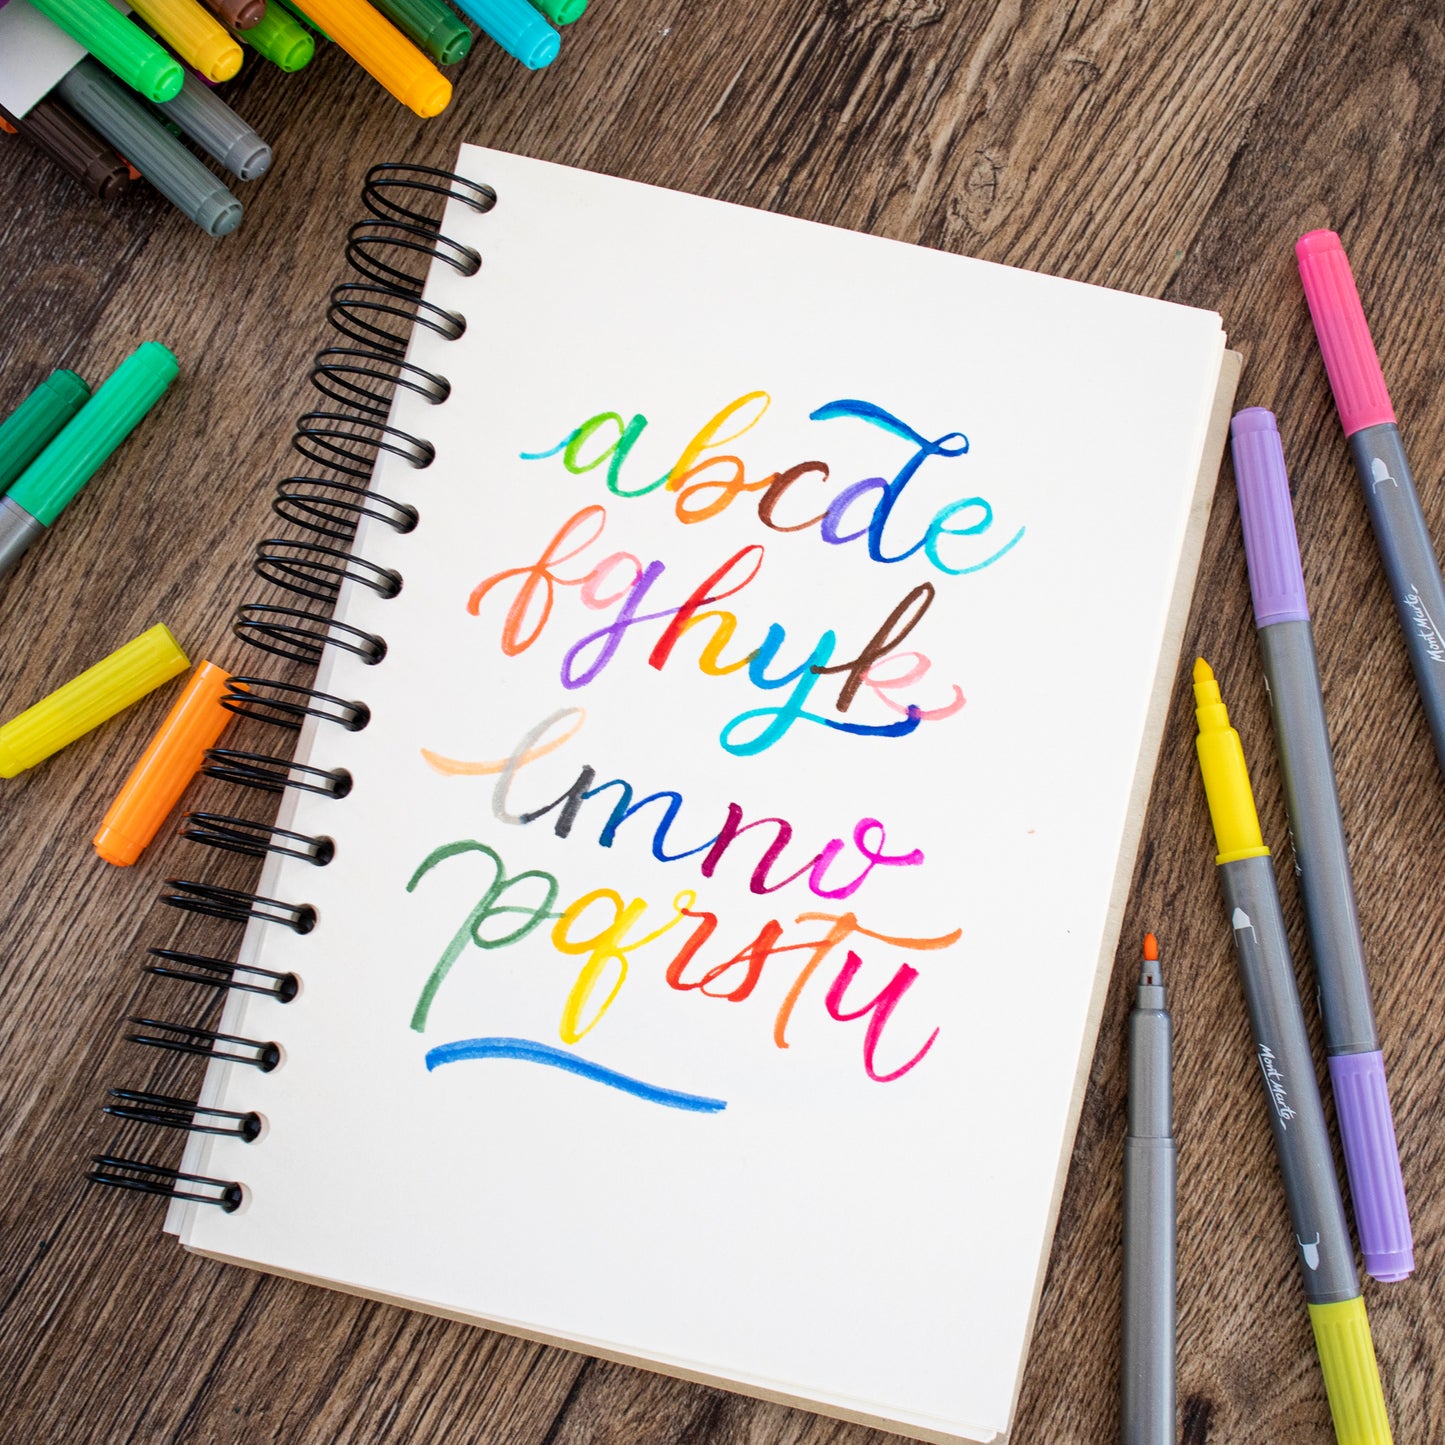 abcde
fghyk
lmno
pqrstu
Mont Marte
Mont Marte